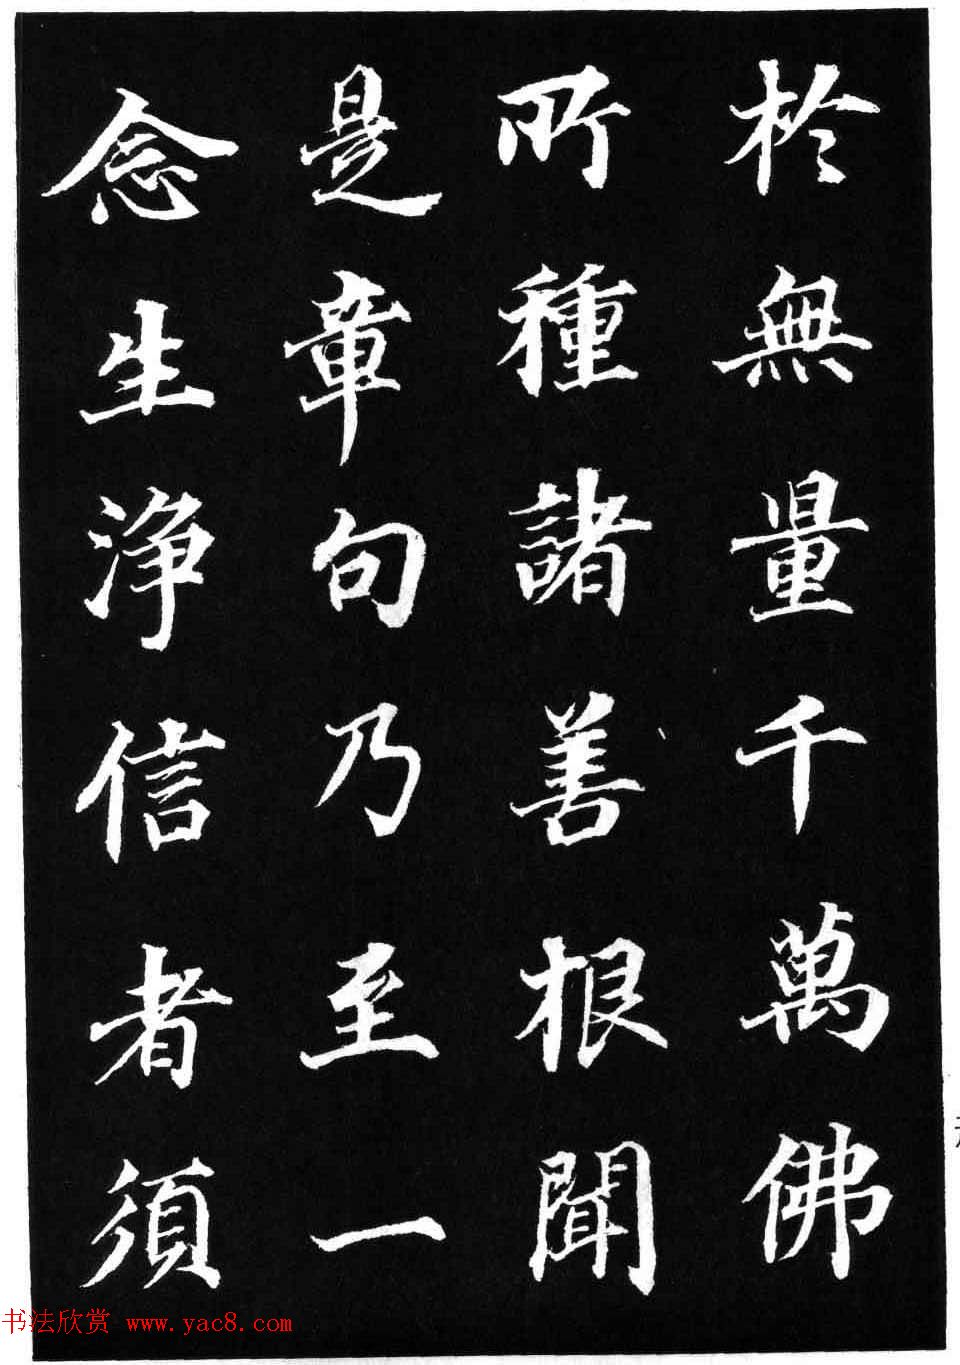 於無量千萬佛
所種諸善根聞
是章句乃至一
念生淨信者須
书法欣赏 www.yac8.com